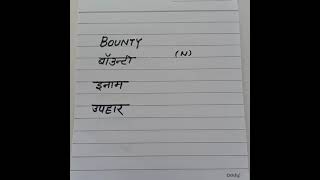 BOUNTY
बॉउन्टी (N)
इनाम
उपहार